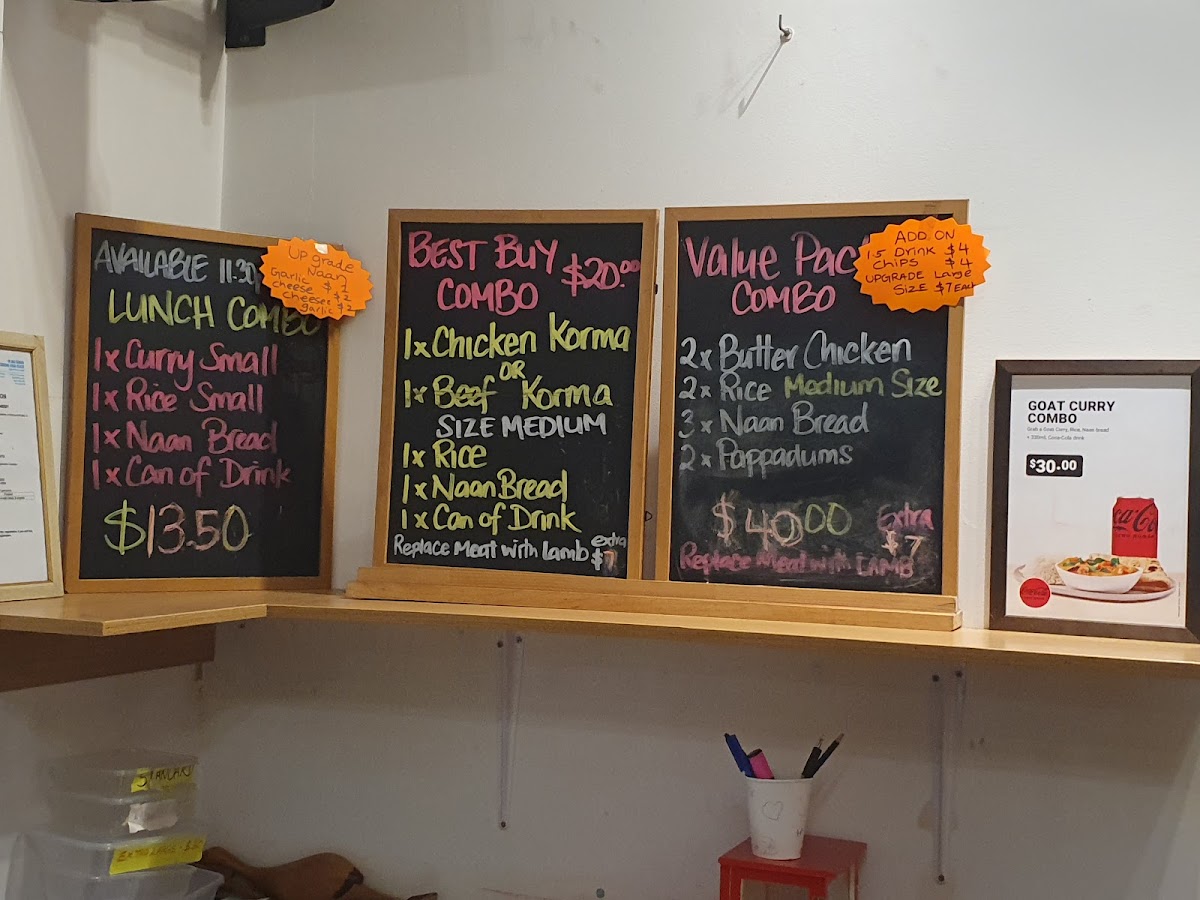 AVAILABLE 11.30
LUNCH COMBO
1x Curry Small
1x Rice Small
1x Naan Bread
1x Can of Drink
$13.50
Upgrade
Naan
Garlic $2
cheese $2
cheese
garlic $2
BEST BUY
COMBO
$20.00
1x Chicken Korma
OR
1x Beef Korma
SIZE MEDIUM
1x Rice
1x Naan Bread
1x Can of Drink
Replace Meat with lamb extra $7
Value Pac
COMBO
2x Butter Chicken
2x Rice Medium Size
3x Naan Bread
2x Pappadums
$40.00
Extra
$7
Replace Meat with LAMB
ADD ON
1.5 Drink $4
CHIPS $4
UPGRADE Large
Size $7 EACH
GOAT CURRY
COMBO
Grab a Goat Curry, Rice, Naan bread
+ 330ml, Coca-Cola drink
$30.00
Coca-Cola